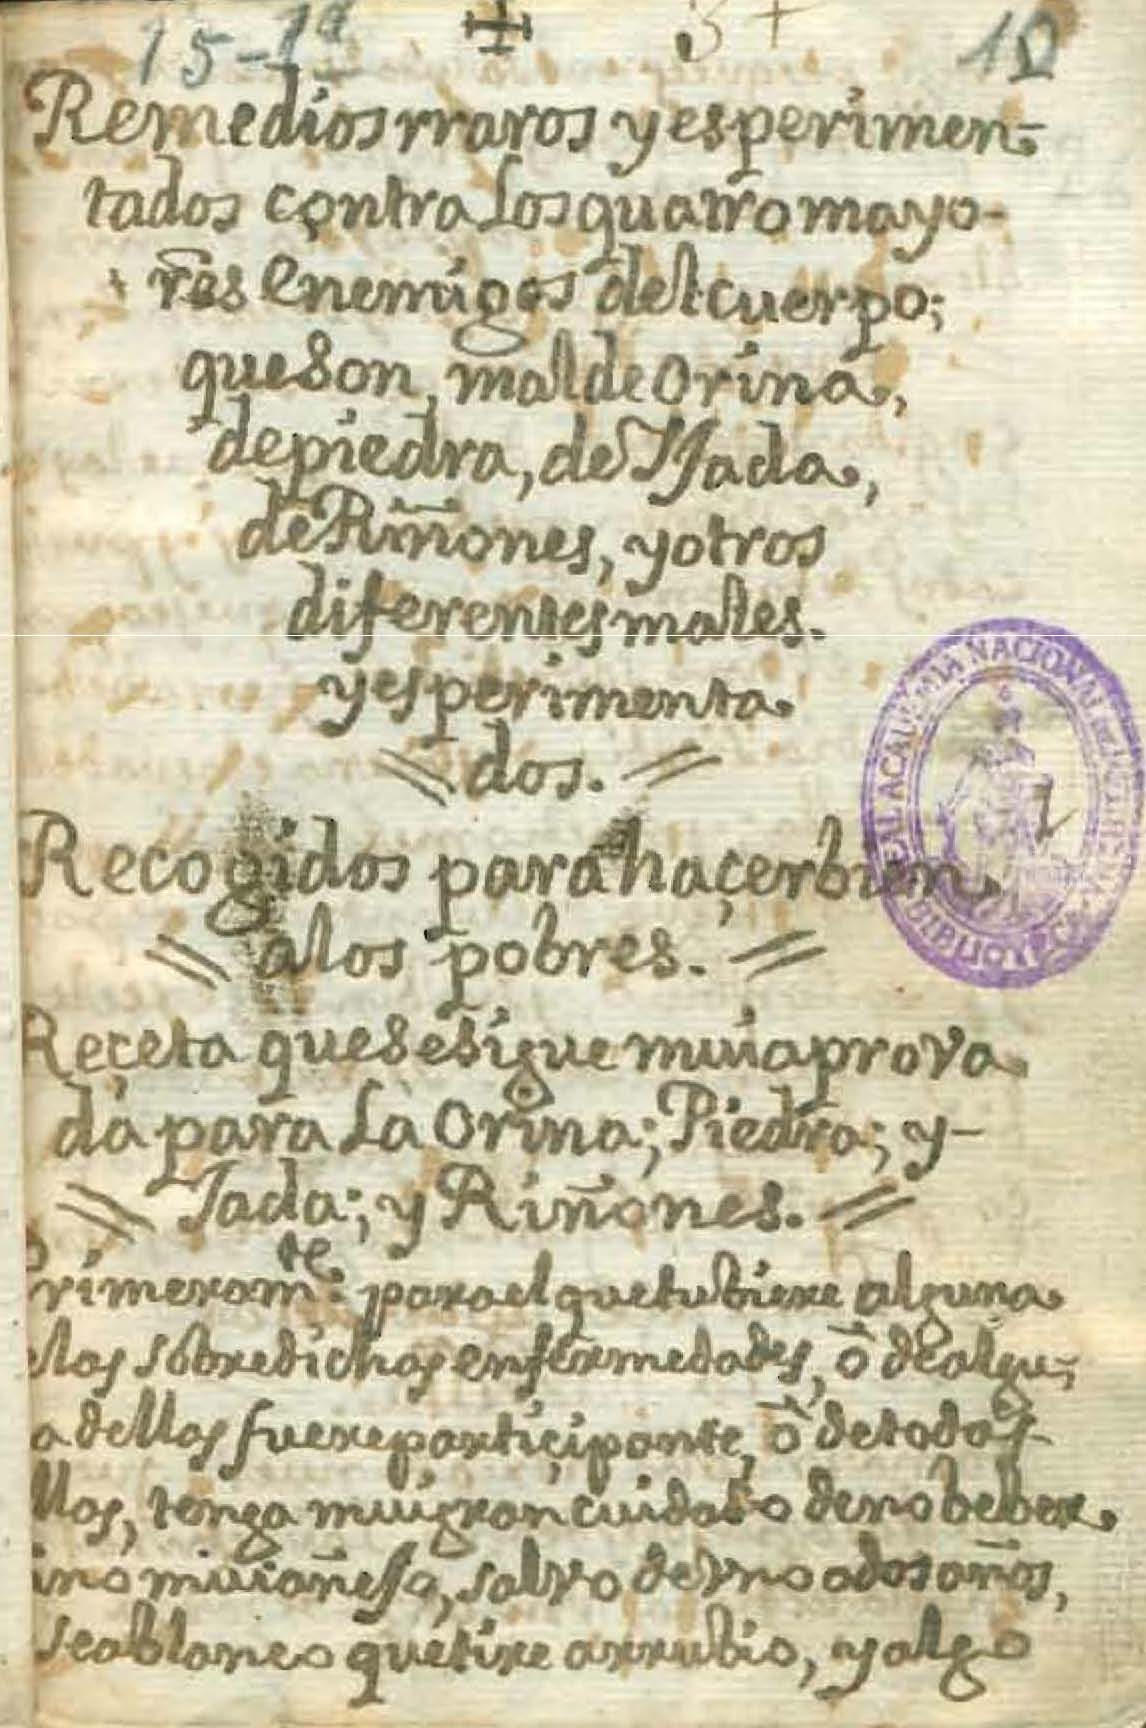 15-1ª 3+ 10
Remedios rraros y esperimen-
tados contra los quatro mayo-
res Enemigos del cuerpo;
que Son, mal de Orina,
de piedra, de YJada,
de Riñones, y otros
diferentes males.
y esperimenta
dos.
Recogidos para haçer bien
a los pobres.
Reçeta que se sigue mui aprova
da para La Orina; Piedra; y-
Jada; y Riñones.
Primeram.te para el que tubiere alguna
elas sobredichas enfermedades, ó de algu-
a dellas fuere partiçipante, ó de todas
llas, tenga mui gran cuidado de no beber
ino mui añeJo, salvo de vno a dos años,
sea blanco que tire a rrubio, y algo
REAL ACADEMIA NACIONAL DE MEDICINA
BIBLIOTECA